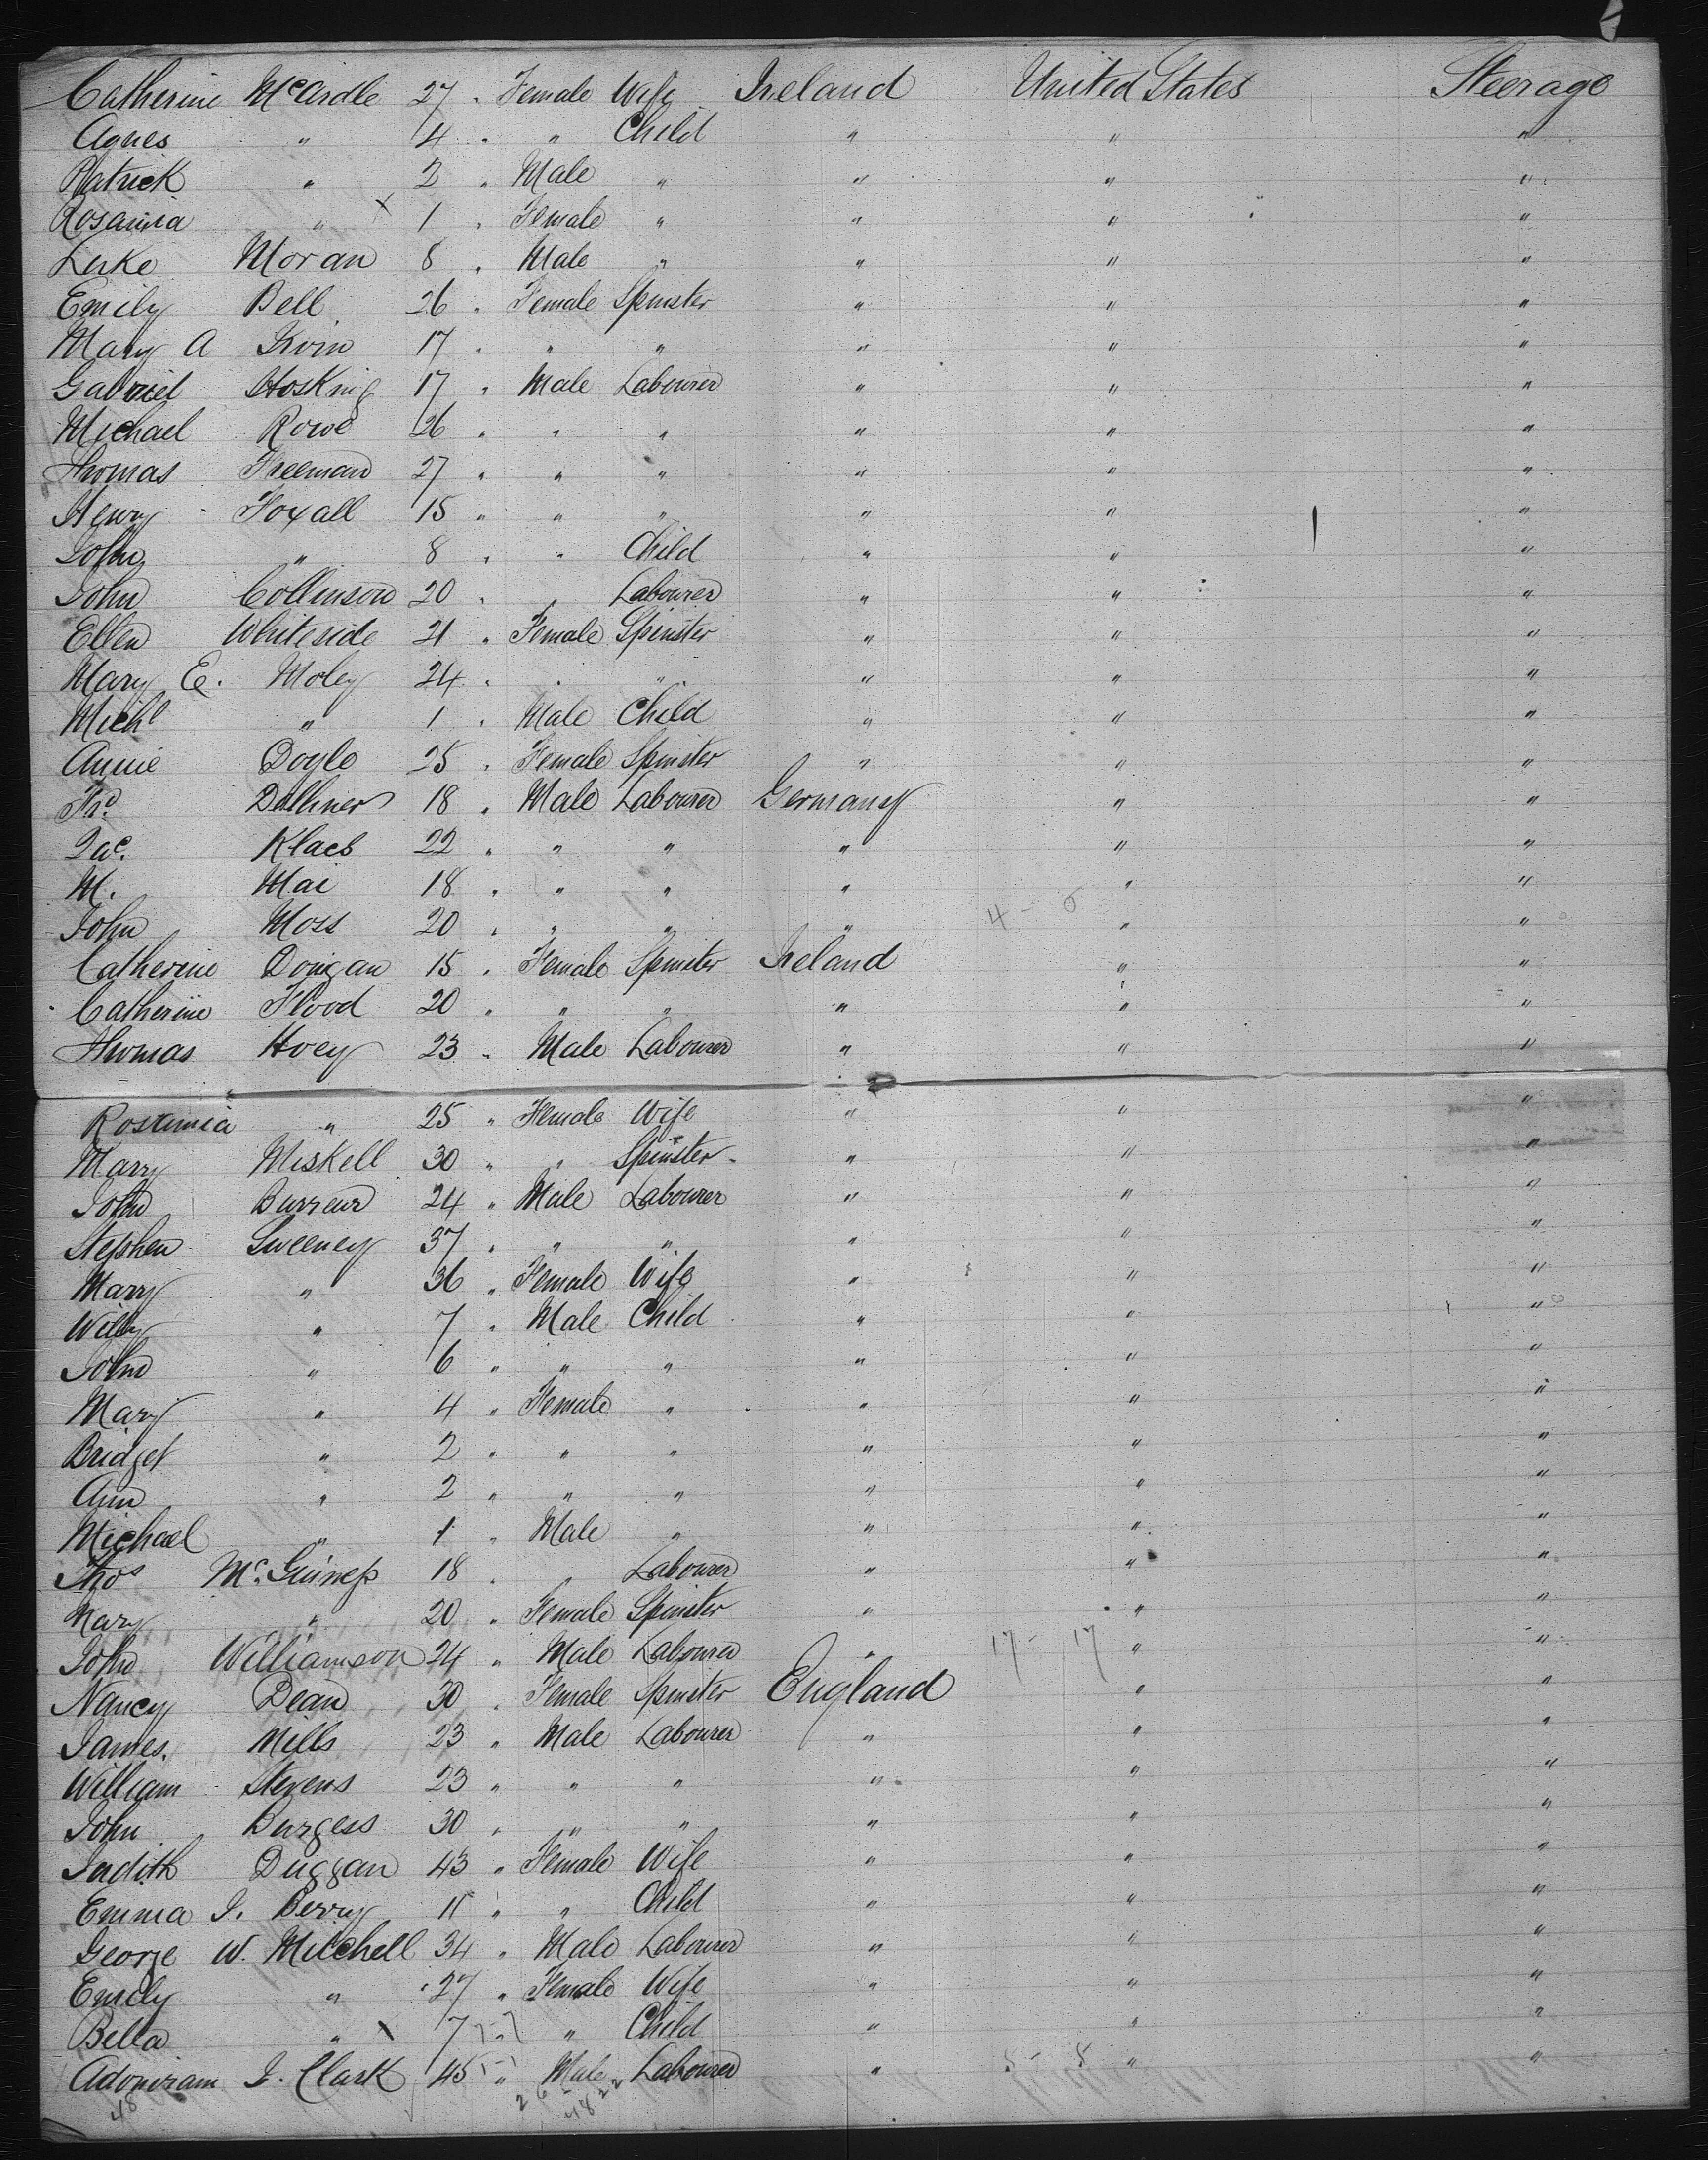 Catherine McArdle 27 " Female Wife Ireland United States Steerage
Agnes " 4 " " Child " " "
Patrick " 2 " Male " " " "
Rosanna " x 1 " Female " " " "
Luke Moran 8 " Male " " " "
Emily Bell 26 " Female Spinster " " "
Mary A 17 " " " " " "
Gabriel Hosking 17 " Male Labourer " " "
Michael Rowe 26 " " " " " "
Thomas Freeman 27 " " " " " "
Henry Foxall 15 " " " " " "
John " 8 " " Child " " "
John Collinson 20 " " Labourer " " "
Ellen Whiteside 21 " Female Spinster " " "
Mary E. Moley 24 " " " " " "
Michl " 1 " Male Child " " "
Annie Doyle 25 " Female Spinster " " "
18 " Male Labourer Germany " "
Jac. Klaes 22 " " " " " "
M. Mai 18 " " " " " "
John Moss 20 " " " " 4 - 0 " "
Catherine Dongan 15 " Female Spinster Ireland " "
Catherine Flood 20 " " " " " "
Thomas Hoey 23 " Male Labourer " " "
Rosanna " 25 " Female Wife " " "
Mary Miskell 30 " " Spinster " " "
John 24 " Male Labourer " " "
Stephen Sweeney 37 " " " " " "
Mary " 36 " Female Wife " " "
Willy " 7 " Male Child " " "
John " 6 " " " " " "
Mary " 4 " Female " " " "
Bridget " 2 " " " " " "
Ann " 2 " " " " " "
Michael " 1 " Male " " " "
Thos Mc.Guiness 18 " " Labourer " " "
Mary " 20 " Female Spinster " " "
John Williamson 24 " Male Labourer " 17 - 17 " "
Nancy Dean 30 " Female Spinster England " "
James. Mills 23 " Male Labourer " " "
William Stevens 23 " " " " " "
John Burgess 30 " " " " " "
Judith Duggan 43 " Female Wife " " "
Emma J. Berry 11 " " Child " " "
George W. Mitchell 34 " Male Labourer " " "
Emily " 27 " Female Wife " " "
Bella " x 7 7-7 " " Child " " "
Adoniram J. Clark 45 1-1 " Male Labourer " 8 - 8 " "
48 26 22
48